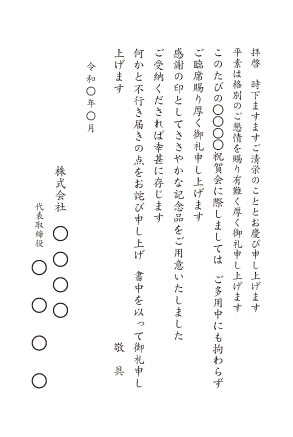 拝啓　時下ますますご清栄のこととお慶び申し上げます
平素は格別のご懇情を賜り有難く厚く御礼申し上げます
このたびの〇〇〇〇祝賀会に際しましては　ご多用中にも拘わらず
ご臨席賜り厚く御礼申し上げます
感謝の印としてささやかな記念品をご用意いたしました
ご受納くだされば幸甚に存じます
何かと不行き届きの点をお詫び申し上げ　書中を以って御礼申し
上げます
敬具
令和〇年〇月
株式会社　〇〇〇〇
代表取締役　〇〇〇〇